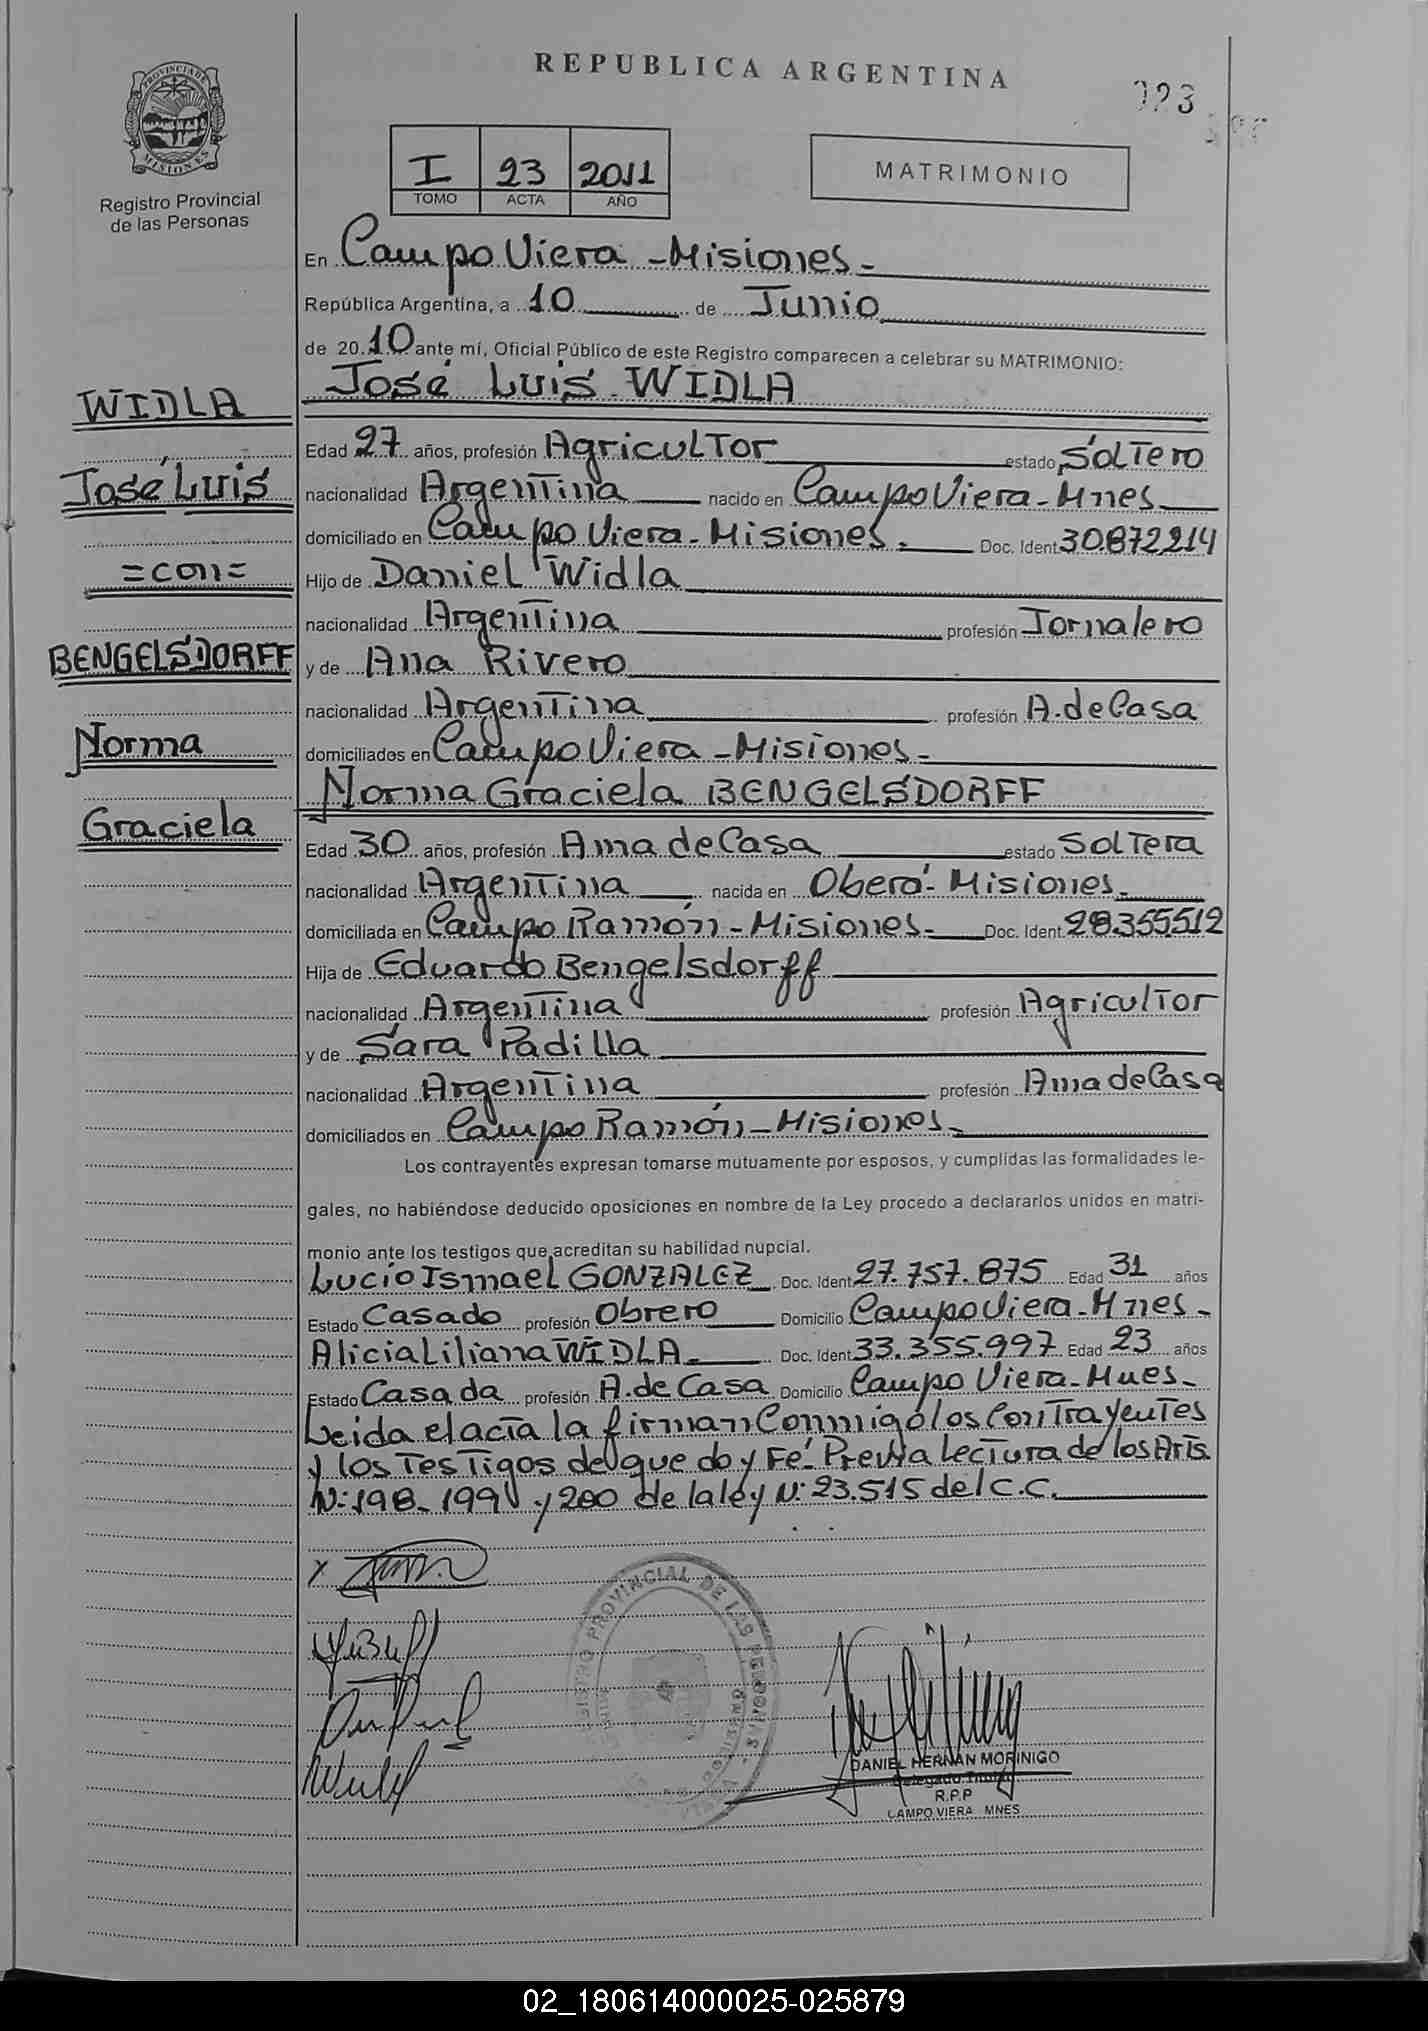 REPUBLICA ARGENTINA
023
PROVINCIA DE
MISIONES
Registro Provincial
de las Personas
I 23 2011
TOMO ACTA AÑO
MATRIMONIO
En Campo Viera - Misiones -
República Argentina, a 10 de Junio
de 2010 ante mí, Oficial Público de este Registro comparecen a celebrar su MATRIMONIO:
WIDLA
José Luis
=con=
BENGELSDORFF
Norma
Graciela
José Luis WIDLA
Edad 27 años, profesión Agricultor estado Soltero
nacionalidad Argentina nacido en Campo Viera - Mnes
domiciliado en Campo Viera - Misiones - Doc. Ident 30.872214
Hijo de Daniel Widla
nacionalidad Argentina profesión Jornalero
y de Ana Rivero
nacionalidad Argentina profesión A. de Casa
domiciliados en Campo Viera - Misiones -
Norma Graciela BENGELSDORFF
Edad 30 años, profesión Ama de Casa estado Soltera
nacionalidad Argentina nacida en Oberá - Misiones -
domiciliada en Campo Ramón - Misiones - Doc. Ident 28.355.512
Hija de Eduardo Bengelsdorff
nacionalidad Argentina profesión Agricultor
y de Sara Padilla
nacionalidad Argentina profesión Ama de Casa
domiciliados en Campo Ramón - Misiones -
Los contrayentes expresan tomarse mutuamente por esposos, y cumplidas las formalidades le-
gales, no habiéndose deducido oposiciones en nombre de la Ley procedo a declararlos unidos en matri-
monio ante los testigos que acreditan su habilidad nupcial.
Lucio Ismael GONZALEZ Doc. Ident 27.757.875 Edad 31 años
Estado Casado profesión Obrero Domicilio Campo Viera - Mnes -
Alicia Liliana WIDLA - Doc. Ident 33.355.997 Edad 23 años
Estado Casada profesión A. de Casa Domicilio Campo Viera - Mnes -
Leida el acta la firman Conmigo los Contrayentes
y los Testigos de que doy Fé. Previa Lectura de los Arts
Nº: 198 - 199 y 200 de la ley Nº: 23.515 del C.C.
REGISTRO PROVINCIAL DE LAS PERSONAS
DANIEL HERNAN MORINIGO
Delegado Titular
R.P.P
CAMPO VIERA MNES
02_180614000025-025879